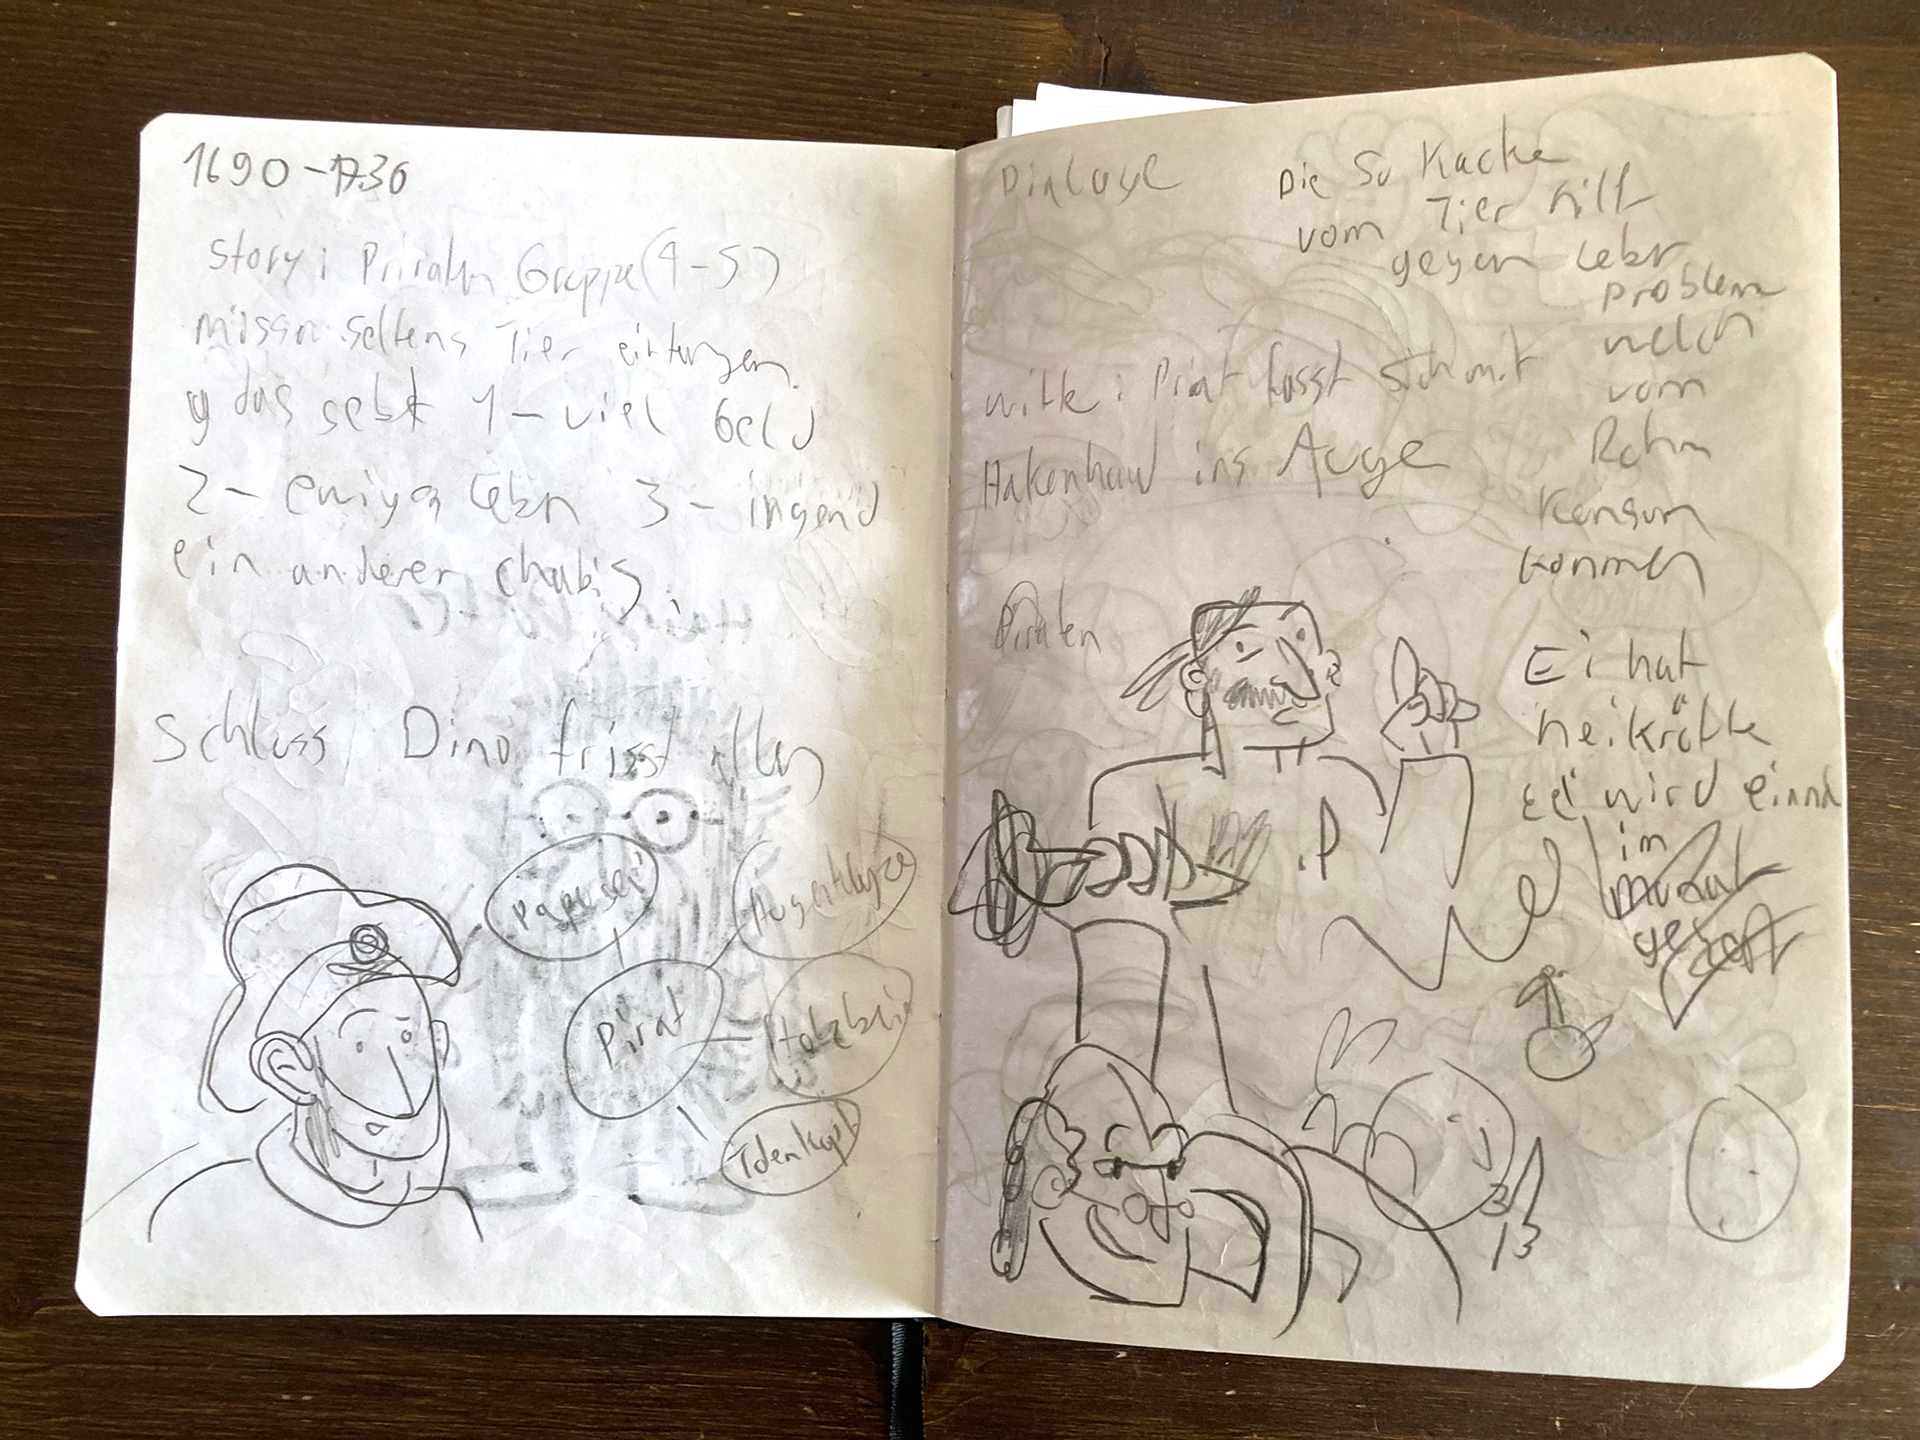 1690-1730
story: Priraten Gruppe (4-5)
missn seltens Tier einfangen
das gebt 1- viel Geld
2- ewiges Lebn 3- irgend
ein anderer chabis
Schluss Dino frisst allen
Papagei
Augenklappe
Pirat
Holzbein
Totenkopf
Dialoge
Die Su Kacke
vom Tier hilft
gegen Lebr
problem
welch
vom
Rohm
Konsum
kommen
witze: Pirat fasst sich mit
Hakenhand ins Auge
Piraten
Ei hat
heikräfte
Ei wird
im
Monat
gelegt